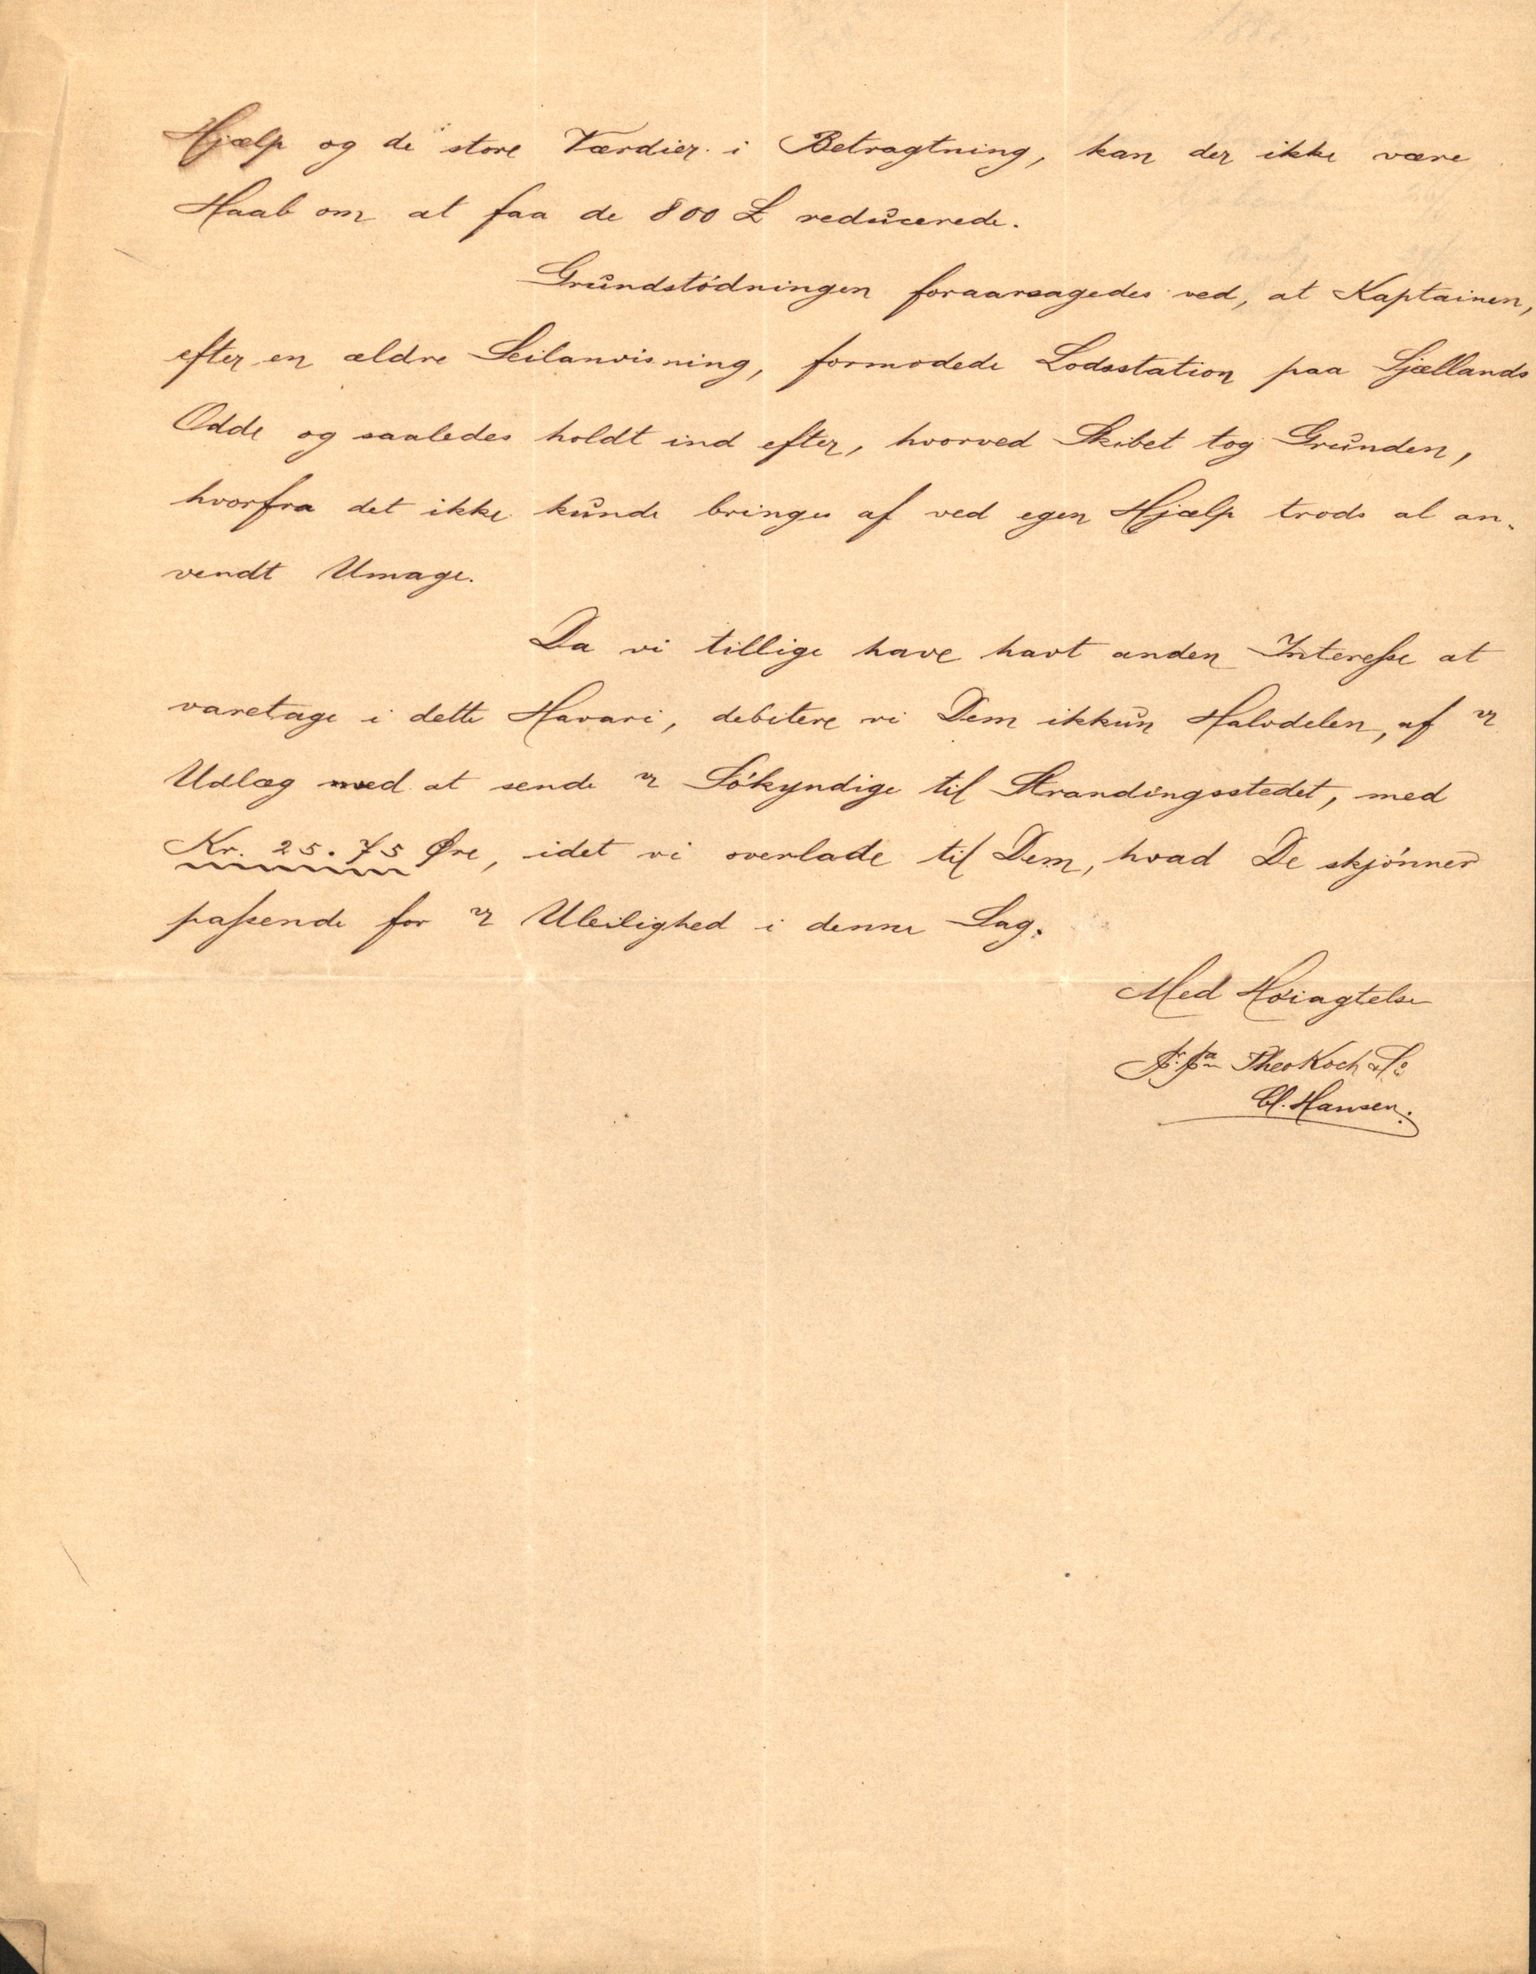 Hjælp og de store Værdier i Betragtning, kan der ikke være
Haab om at faa de 800 £ reducerede.
Grundstödningen foraarsagedes ved, at Kaptainen,
efter en ældre Seilanvisning, formodede Lodsstation paa Sjællands
Odde og saaledes holdt ind efter, hvorved Skibet tog Grunden,
hvorfra det ikke kunde bringes af ved egen Hjælp trods al an-
vendt Umage.
Da vi tillige have havt anden Interesse at
varetage i dette Havari, debitere vi Dem ikkun Halvdelen, af vr
Udlæg med at sende vr Sökyndige til Strandingsstedet, med
Kr. 25.75 Øre, idet vi overlade til Dem, hvad De skjönner
passende for vr Uleilighed i denne Sag.
Med Høiagtelse
pr. pa Theo Koch & Co
Cl. Hansen.